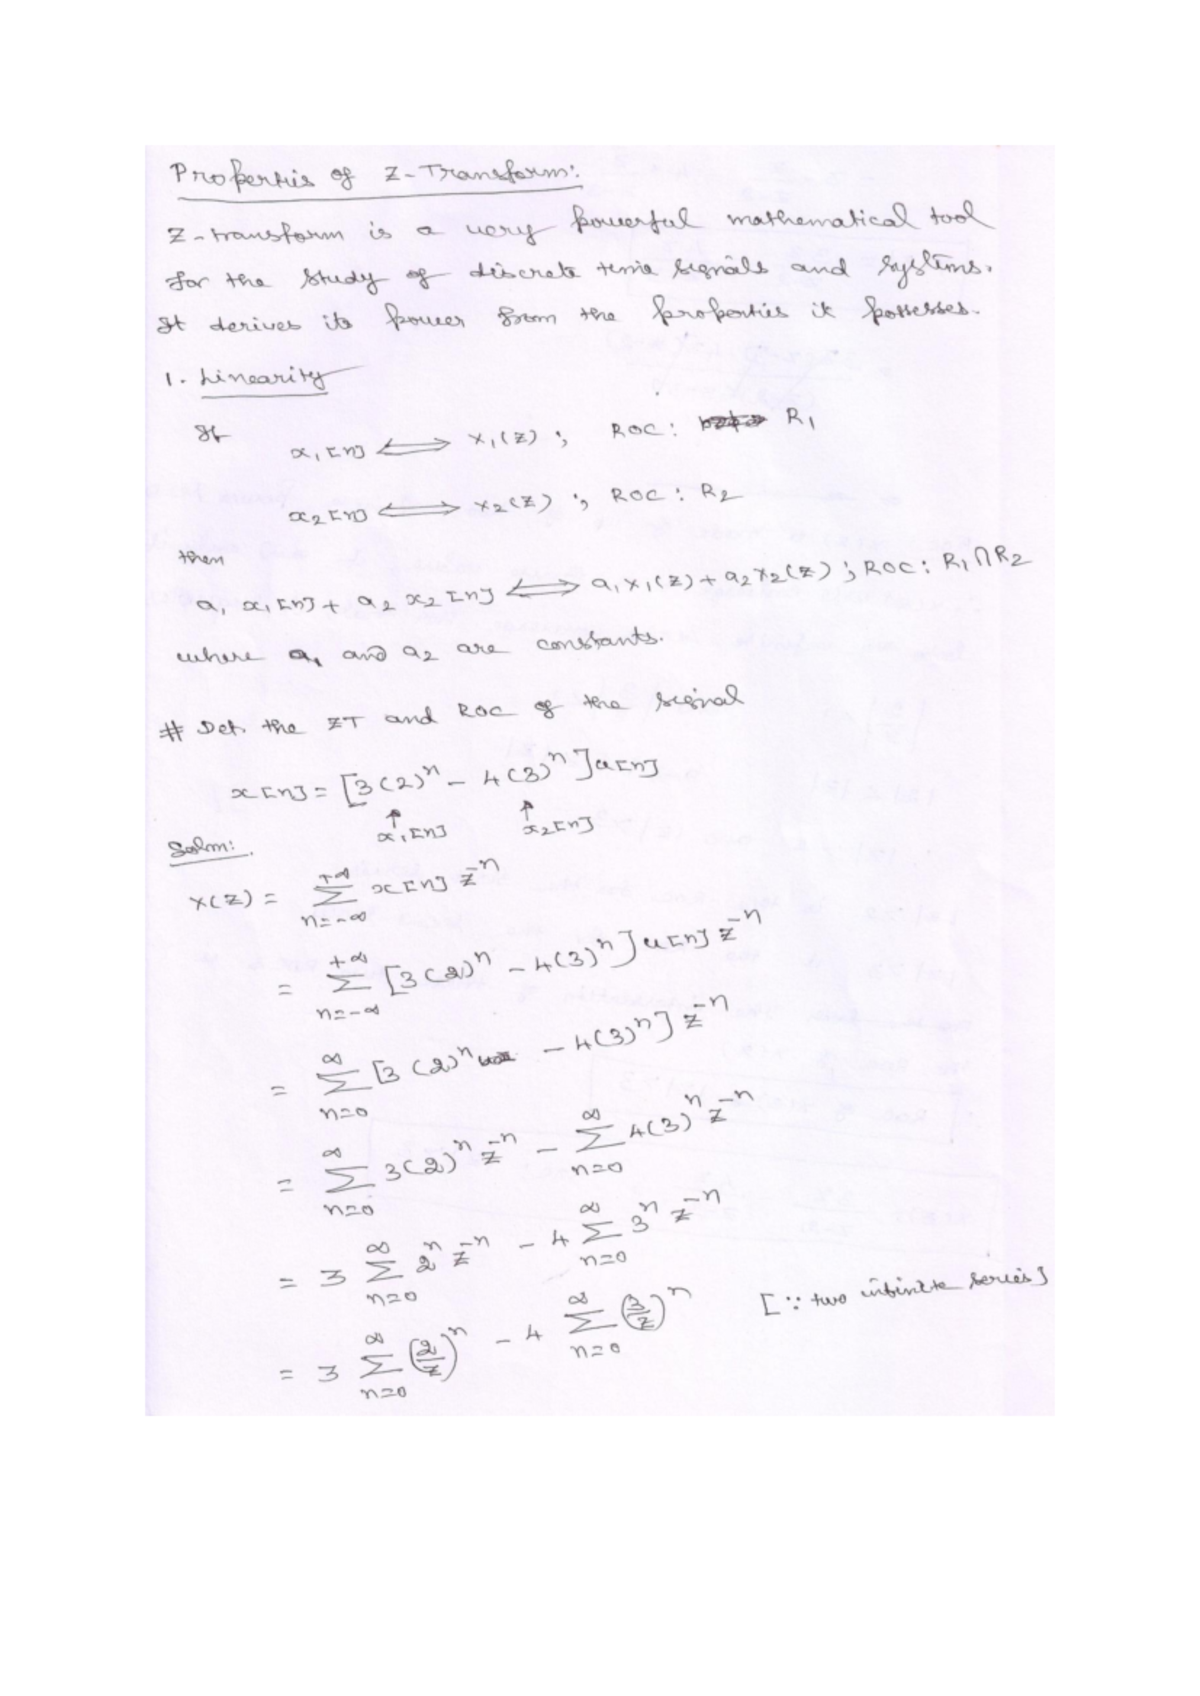 Properties of Z-Transform:
Z-transform is a very powerful mathematical tool
for the study of discrete time signals and systems.
It derives its power from the properties it possesses.
1. Linearity
If
x₁[n] ⟺ X₁(Z) ; ROC: R₁
x₂[n] ⟺ X₂(Z) ; ROC: R₂
then
a₁ x₁[n] + a₂ x₂[n] ⟺ a₁X₁(Z) + a₂X₂(Z) ; ROC: R₁∩R₂
where a₁ and a₂ are constants.
# Det. the ZT and ROC of the signal
x[n] = [3(2)ⁿ - 4(3)ⁿ]u[n]
↑ ↑
x₁[n] x₂[n]
Soln:
X(Z) = ∑_{n=-∞}^{+∞} x[n] z⁻ⁿ
= ∑_{n=-∞}^{+∞} [3(2)ⁿ - 4(3)ⁿ]u[n] z⁻ⁿ
= ∑_{n=0}^{∞} [3(2)ⁿ - 4(3)ⁿ] z⁻ⁿ
= ∑_{n=0}^{∞} 3(2)ⁿ z⁻ⁿ - ∑_{n=0}^{∞} 4(3)ⁿ z⁻ⁿ
= 3 ∑_{n=0}^{∞} 2ⁿ z⁻ⁿ - 4 ∑_{n=0}^{∞} 3ⁿ z⁻ⁿ
= 3 ∑_{n=0}^{∞} (2/z)ⁿ - 4 ∑_{n=0}^{∞} (3/z)ⁿ [∵ two infinite series]